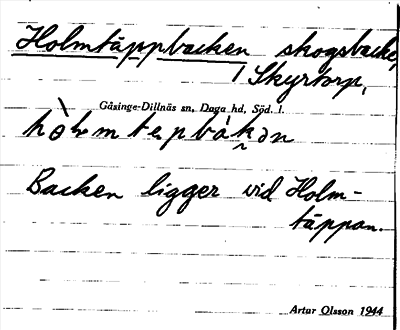 Holmtäppbacken skogsbacke,
i Skyrtorp,
Gåsinge-Dillnäs sn, Daga hd, Söd. l.
Backen ligger vid Holm-
täppan.
Artur Olsson 1944